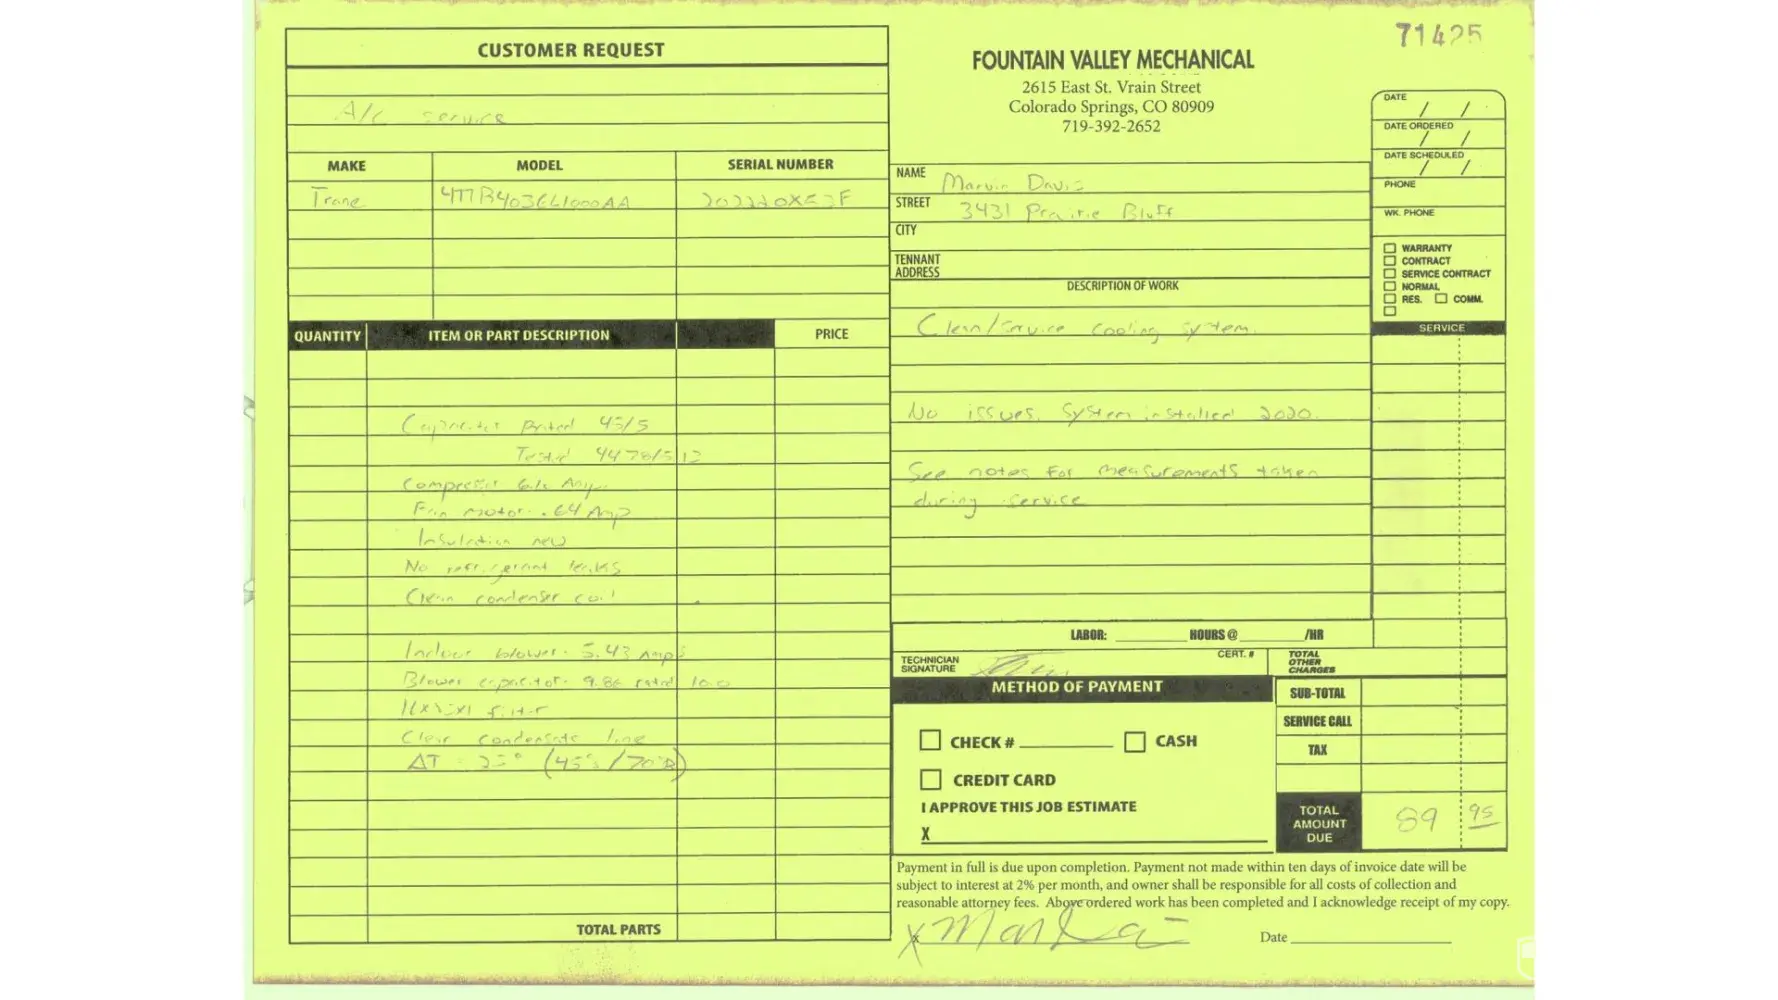 71425
CUSTOMER REQUEST
A/C service
MAKE MODEL SERIAL NUMBER
Trane 4TTB4036L1000AA
QUANTITY ITEM OR PART DESCRIPTION PRICE
Capacitor Rated 45/5
Tested 44.78/5.12
Compressor Amp
Fan motor - .64 Amp
Insulation new
No refrigerant leaks
Clean condenser coil
Indoor blower - 5.43 Amps
Blower capacitor - 9.86 rated 10.0
filter
Clear condensate line
ΔT = 25° (45°s/70°R)
TOTAL PARTS
FOUNTAIN VALLEY MECHANICAL
2615 East St. Vrain Street
Colorado Springs, CO 80909
719-392-2652
DATE / /
DATE ORDERED / /
DATE SCHEDULED / /
PHONE
WK. PHONE
NAME Marvin Davis
STREET 3431 Prairie Bluff
CITY
TENNANT
ADDRESS
WARRANTY
CONTRACT
SERVICE CONTRACT
NORMAL
RES. COMM.
DESCRIPTION OF WORK
SERVICE
Clean/Service cooling system.
No issues. System installed 2020.
See notes for measurements taken
during service
LABOR: ________ HOURS @ ________ /HR
TECHNICIAN
SIGNATURE
CERT. #
TOTAL
OTHER
CHARGES
METHOD OF PAYMENT
SUB-TOTAL
SERVICE CALL
TAX
CHECK # ________ CASH
CREDIT CARD
I APPROVE THIS JOB ESTIMATE
X
TOTAL
AMOUNT
DUE
89 95
Payment in full is due upon completion. Payment not made within ten days of invoice date will be
subject to interest at 2% per month, and owner shall be responsible for all costs of collection and
reasonable attorney fees. Above ordered work has been completed and I acknowledge receipt of my copy.
x
Date